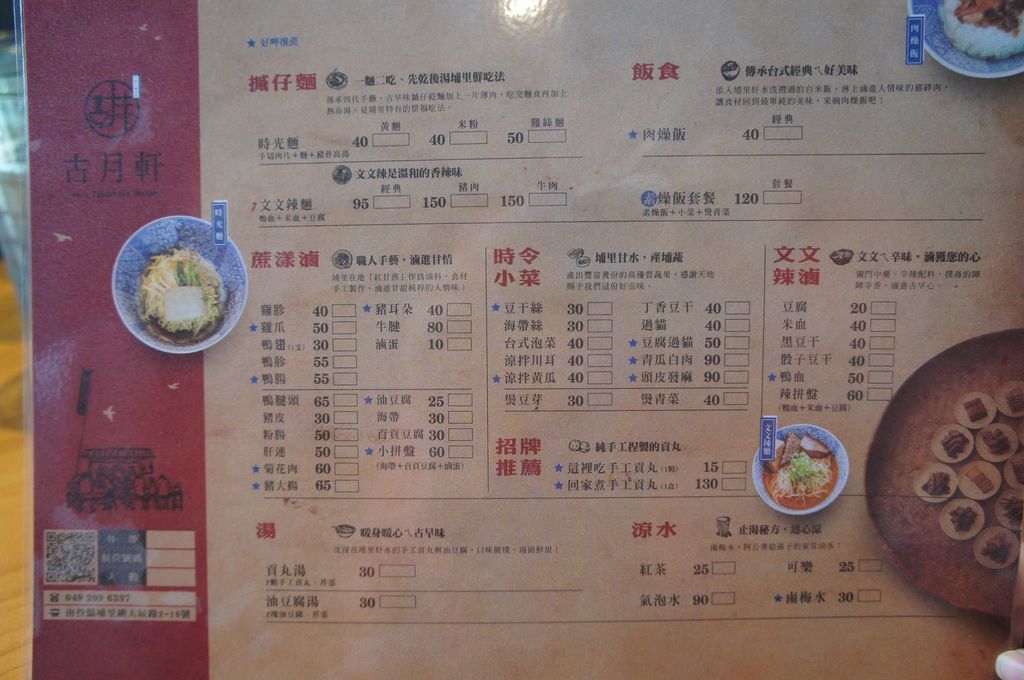 古月軒
外帶
候位號碼
人數
049 299 6337
時光麵
★ 好呷推薦
摵仔麵
一麵二吃、先乾後湯埔里鮮吃法
傳承四代手藝，古早味摵仔乾麵加上一片薄肉，吃完麵食再加上
熱高湯，是埔里特有的惜福吃法。
黃麵 米粉 雞絲麵
時光麵 40 40 50
手切肉片+麵+豬骨高湯
文文辣是溫和的香辣味
經典 豬肉 牛肉
文文辣麵 95 150 150
鴨血+米血+豆腐
飯食
傳承台式經典ㄟ好美味
添入埔里好水洗禮過的白米飯，淋上滷進人情味的豬碎肉，
讓食材回到最單純的美味，來碗肉燥飯吧！
經典
★ 肉燥飯 40
套餐
素燥飯套餐 120
素燥飯+小菜+燙青菜
肉燥飯
蔗漾滷
職人手藝，滷進甘情
埔里在地「紅甘蔗」作為滷料，食材
手工製作，滷進甘甜純粹的人情味！
雞胗 40
★ 雞爪 50
鴨翅(1支) 30
鴨胗 55
★ 鴨腸 55
★ 豬耳朵 40
牛腱 80
滷蛋 10
鴨腱頭 65
豬皮 30
粉腸 50
肝連 50
★ 菊花肉 60
★ 豬大腸 65
★ 油豆腐 25
海帶 30
百頁豆腐 30
★ 小拼盤 60
(海帶+百頁豆腐+滷蛋)
時令
小菜
埔里甘水，產埔蔬
產出豐富費份的高優質蔬果，感謝天地
賜予我們這份好滋味。
★ 豆干絲 30
海帶絲 30
台式泡菜 40
涼拌川耳 40
★ 涼拌黃瓜 40
燙豆芽 30
丁香豆干 40
過貓 40
★ 豆腐過貓 50
★ 青瓜白肉 90
★ 頭皮發麻 90
燙青菜 40
招牌
推薦
純手工捏製的貢丸
★ 這裡吃手工貢丸(1顆) 15
★ 回家煮手工貢丸(1盒) 130
文文
辣滷
文文ㄟ辛味，滷獲您的心
獨門中藥、辛辣配料，撲鼻的陣
陣辛香，滷進古早心。
豆腐 20
米血 40
黑豆干 40
骰子豆干 40
★ 鴨血 50
辣拼盤 60
(鴨血+米血+豆腐)
文文辣麵
湯
暖身暖心ㄟ古早味
沈浸在埔里好水的手工貢丸與油豆腐，口味簡樸，湯頭鮮甜！
貢丸湯 30
2顆手工貢丸、芹菜
油豆腐湯 30
2塊油豆腐、芹菜
涼水
止渴秘方，透心涼
滷梅水，阿公賣給孫子的家常涼水！
紅茶 25
可樂 25
氣泡水 90
★ 滷梅水 30